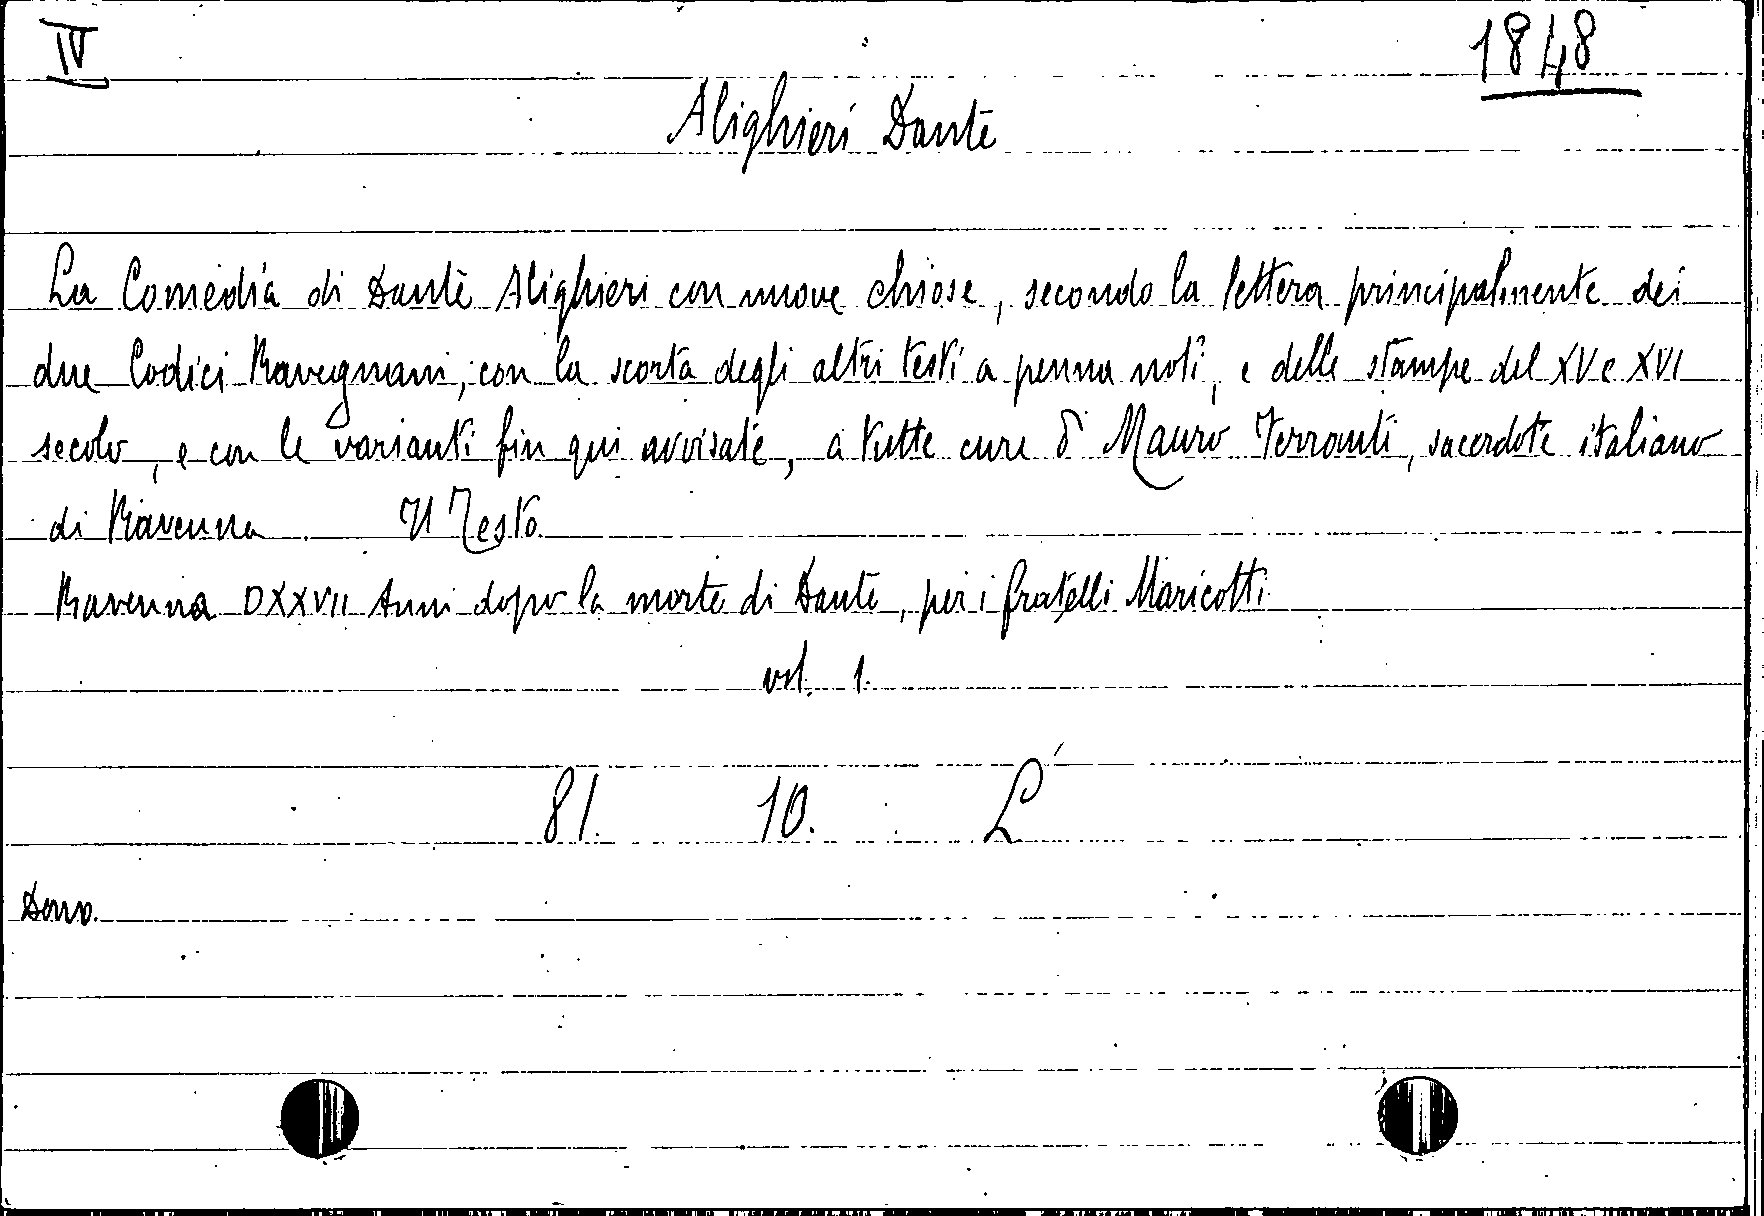 IV
1848
Alighieri Dante
La Comedia di Dante Alighieri con nuove chiose, secondo la lettera principalmente dei
due Codici Ravegnani, con la scorta degli altri testi a penna noti, e delle stampe del XV e XVI
secolo, e con le varianti fin qui avvisate, a tutte cure d' Mauro Ferranti, sacerdote italiano
di Ravenna Il Testo.
Ravenna DXXVII Anni dopo la morte di Dante, per i fratelli Maricotti
vol. 1.
81. 10. L
Dono.